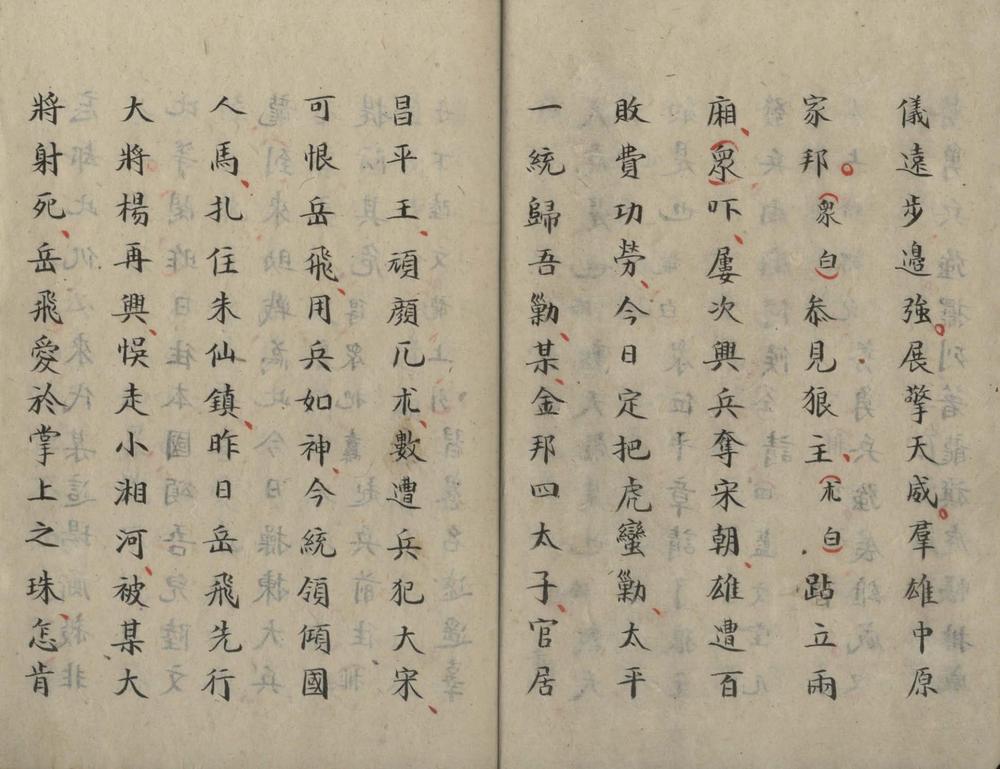 儀遠步邉強。展擎天威。羣雄中原
家邦。（衆白）叅見狼主、（朮白）跕立兩
廂、（衆）吓、屢次興兵奪宋朝、雄遭百
敗費功勞、今日定把虎蠻勦、太平
一統歸吾勦、某、金邦四太子、官居
昌平王、頑顏兀朮、數遭兵犯大宋、
可恨岳飛、用兵如神、今統領傾國
人馬、扎住朱仙鎮、昨日岳飛先行
大將楊再興、悮走小湘河、被某大
將射死、岳飛愛於掌上之珠、怎肯